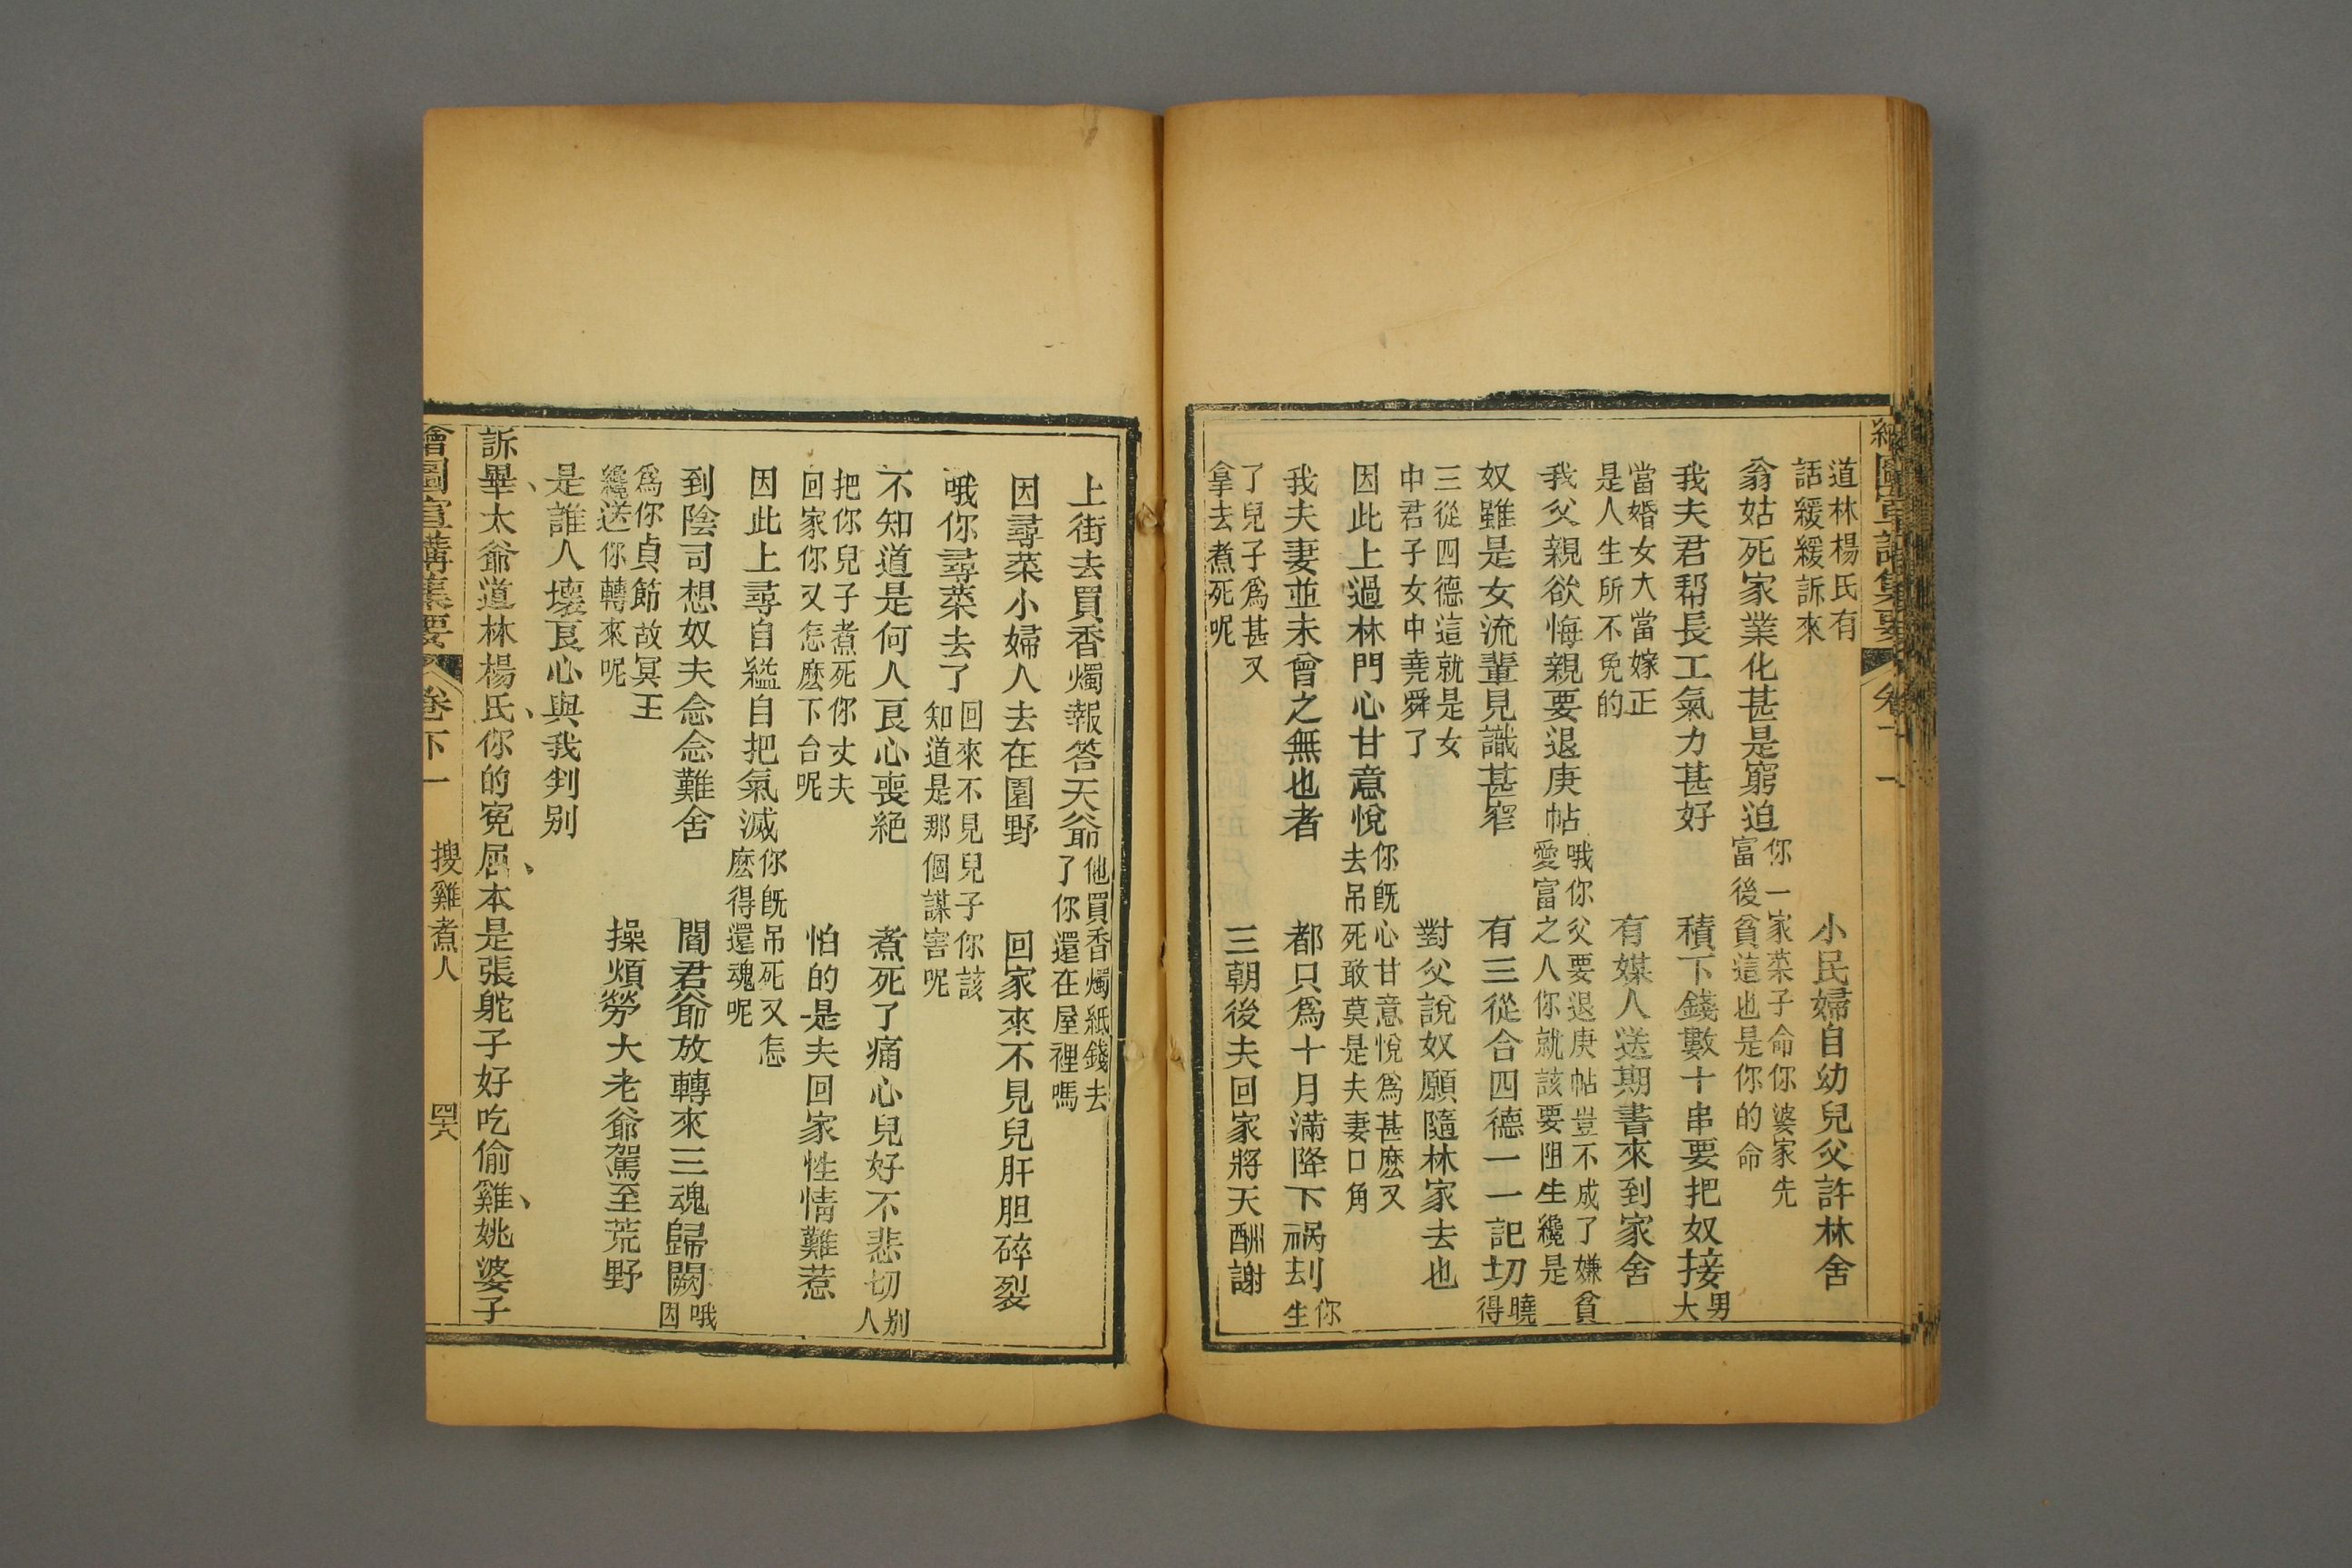 繪圖宣講集要 卷下一
道林楊氏有話緩緩訴來 小民婦自幼兒父許林舍
翁姑死家業化甚是窮迫 你一家菜子命你婆家先富後貧這也是你的命
我夫君帮長工氣力甚好 積下錢數十串要把奴接 男大
當婚女大當嫁正是人生所不免的 有媒人送期書來到家舍
我父親欲悔親要退庚帖 哦你父要退庚帖豈不成了嫌貧愛富之人你就該要阻生纔是
奴雖是女流輩見識甚窄 有三從合四德一一記切 曉得
三從四德這就是女中君子女中堯舜了 對父說奴願隨林家去也
因此上過林門心甘意悅 你既心甘意悅爲甚麽又去吊死敢莫是夫妻口角
我夫妻並未曾之無也者 都只爲十月滿降下禍刦 你生
了兒子爲甚又拿去煮死呢 三朝後夫回家將天酬謝
上街去買香燭報答天爺 他買香燭紙錢去了你還在屋裡嗎
因尋菜小婦人去在園野 回家來不見兒肝胆碎裂
哦你尋菜去了 回來不見兒子你該知道是那個謀害呢
不知道是何人良心喪絕 煮死了痛心兒好不悲切 别人
把你兒子煮死你丈夫回家你又怎麽下台呢 怕的是夫回家性情難惹
因此上尋自縊自把氣滅 你既吊死又怎麽得還魂呢
到陰司想奴夫念念難舍 閻君爺放轉來三魂歸闕 哦因
爲你貞節故冥王纔送你轉來呢 操煩勞大老爺駕至荒野
是誰人壞良心與我判别
訴畢、太爺道林楊氏、你的寃屈、本是張鴕子好吃偷雞、姚婆子
繪圖宣講集要 卷下一 搜雞煮人 四六